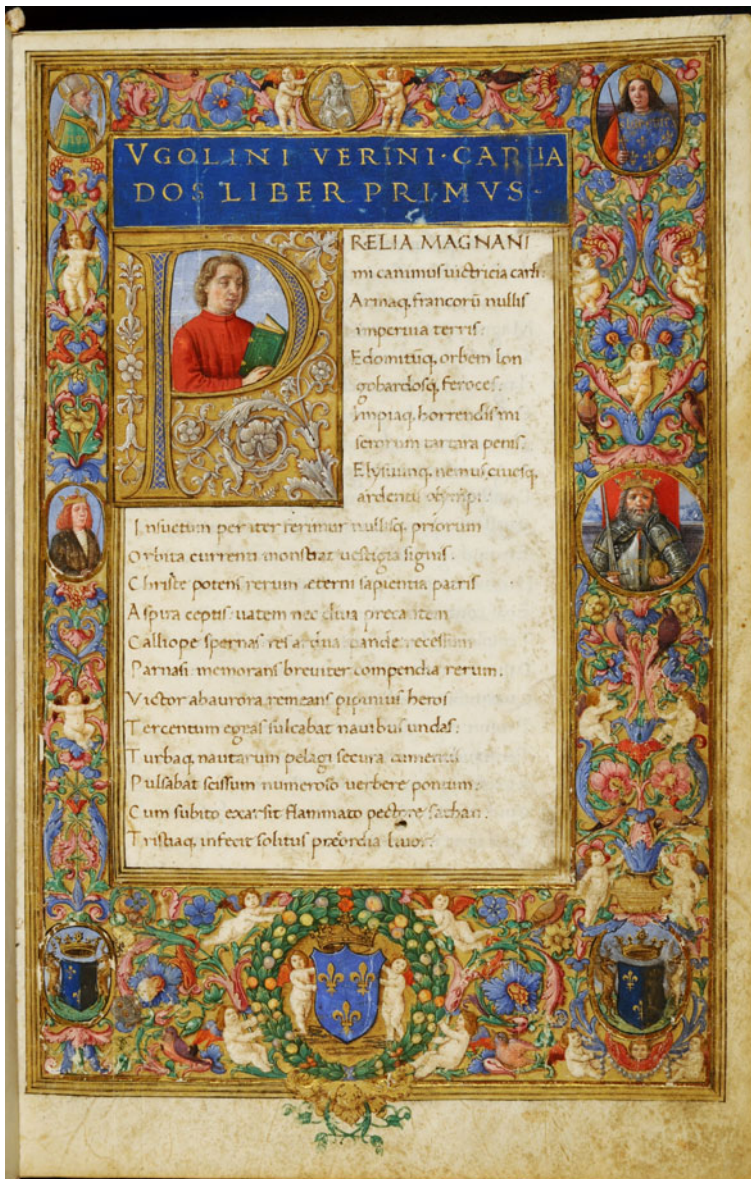 VGOLINI VERINI·CARLIA
DOS LIBER PRIMVS
PRELIA MAGNANI
mi canimus uictricia carli:
Armaq. francorū nullis
imperuia terris:
Edomitūq. orbem lon
gobardosq. feroces:
Impiaq. horrendis mi
serorum tartara penis:
Elysiunq. nemus, ciuesq.
ardentis olympi:
Insuetum per iter ferimur nullisq. priorum
Orbita currenti monstrat uestigia signis.
Christe potens rerum eterni sapientia patris
Aspira ceptis: uatem nec diua precantem
Calliope spernas res ardua pande recessum
Parnasi memorans breuiter compendia rerum.
Victor ab aurora remeans pipinius heros
Tercentum egeas sulcabat nauibus undas:
Turbaq. nautarum pelagi secura
Pulsabat scissum numeroso uerbere pontum:
Cum subito exarsit flammato pectore sathan.
Tristiaq. infecit solitus precordia liuor: